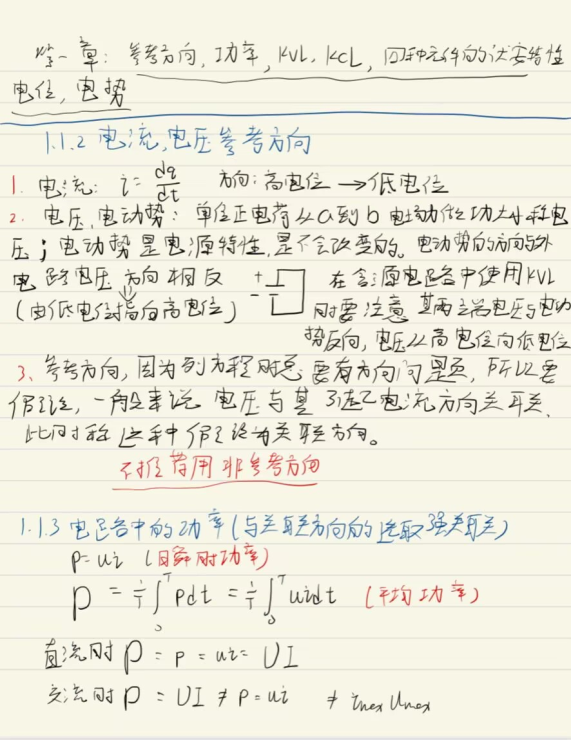 第一章：参考方向，功率，KVL，KCL，四种元件的伏安特性
电位，电势
1.1.2 电流，电压参考方向
1. 电流： i = dq/dt 方向：高电位 → 低电位
2. 电压，电动势：单位正电荷从a到b电场力做功大小称电
压；电动势是电源特性，是不会改变的。电动势的方向与外
电路电压方向相反 + - 在含源电路中使用KVL
（由低电位指向高电位） 时要注意其两端电压与电动
势反向，电压从高电位向低电位
3、参考方向，因为列方程时总要有方向问题，所以要
假设，一般来说电压与其 电流方向关联，
此时称这种假设为关联方向。
不推荐用非参考方向
1.1.3 电路中的功率（与关联方向的选取强关联）
p = ui （瞬时功率）
P = 1/T ∫₀ᵀ pdt = 1/T ∫₀ᵀ uidt （平均功率）
直流时 P = p = ui = UI
交流时 P = UI ≠ p = ui ≠ imax Umax